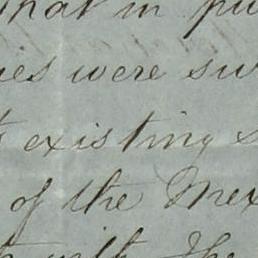 that in pu
es were su
existing s
of the Mex
with the